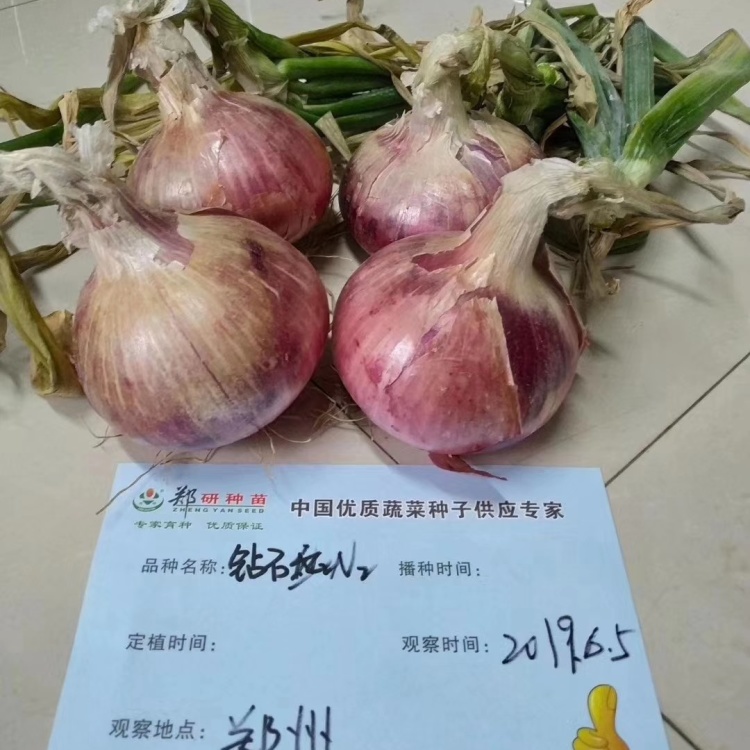 郑研种苗
ZHENG YAN SEED
专家育种 优质保证
中国优质蔬菜种子供应专家
品种名称：钻石红N2
播种时间：
定植时间：
观察时间：2019.6.5
观察地点：郑州